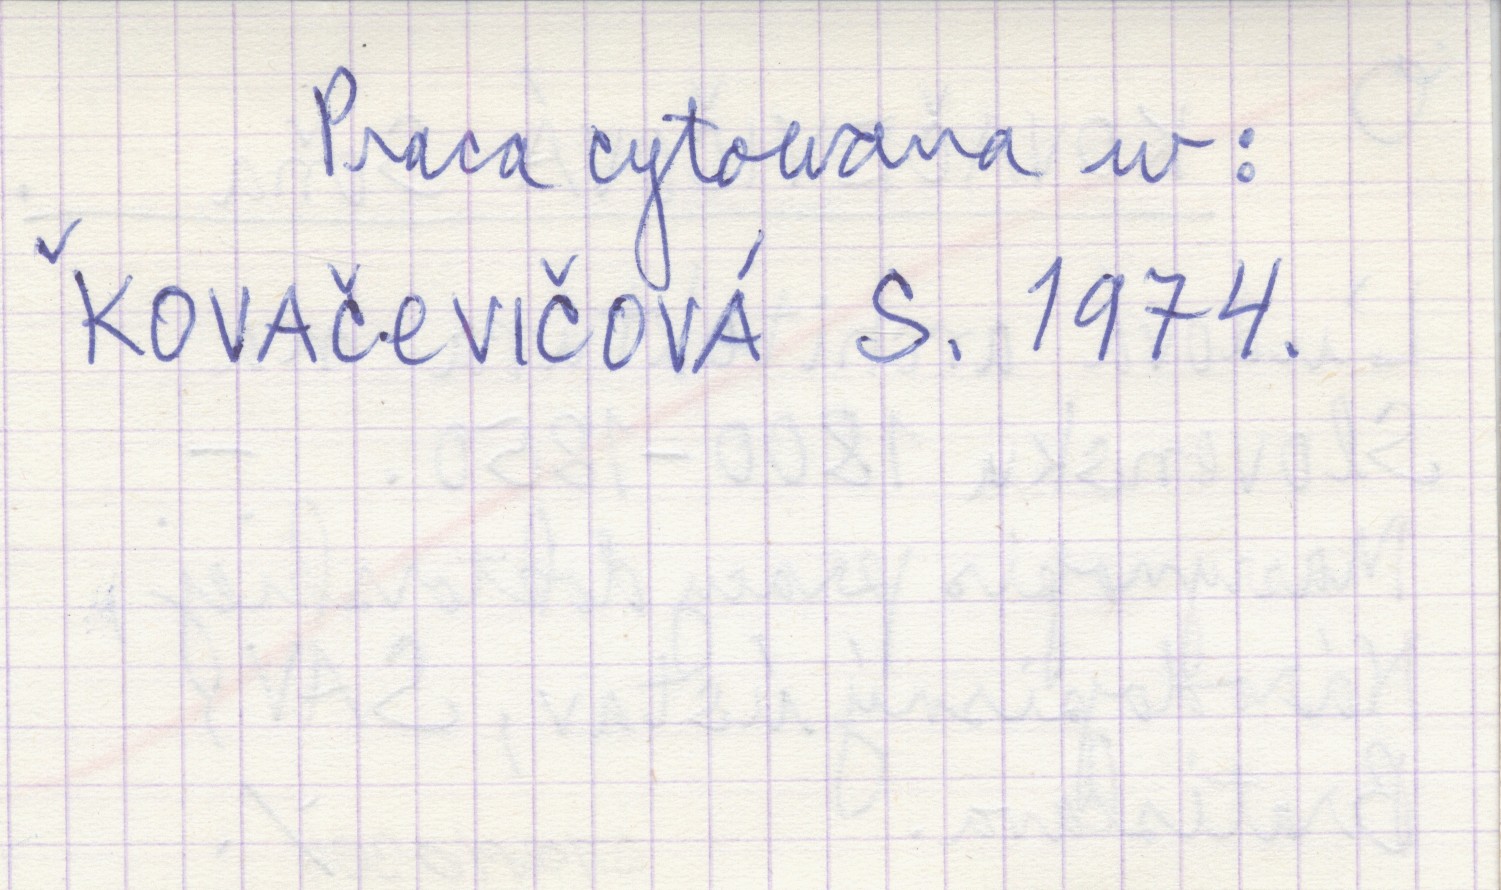 Praca cytowana w:
✓KOVAČEVIČOVÁ S. 1974.